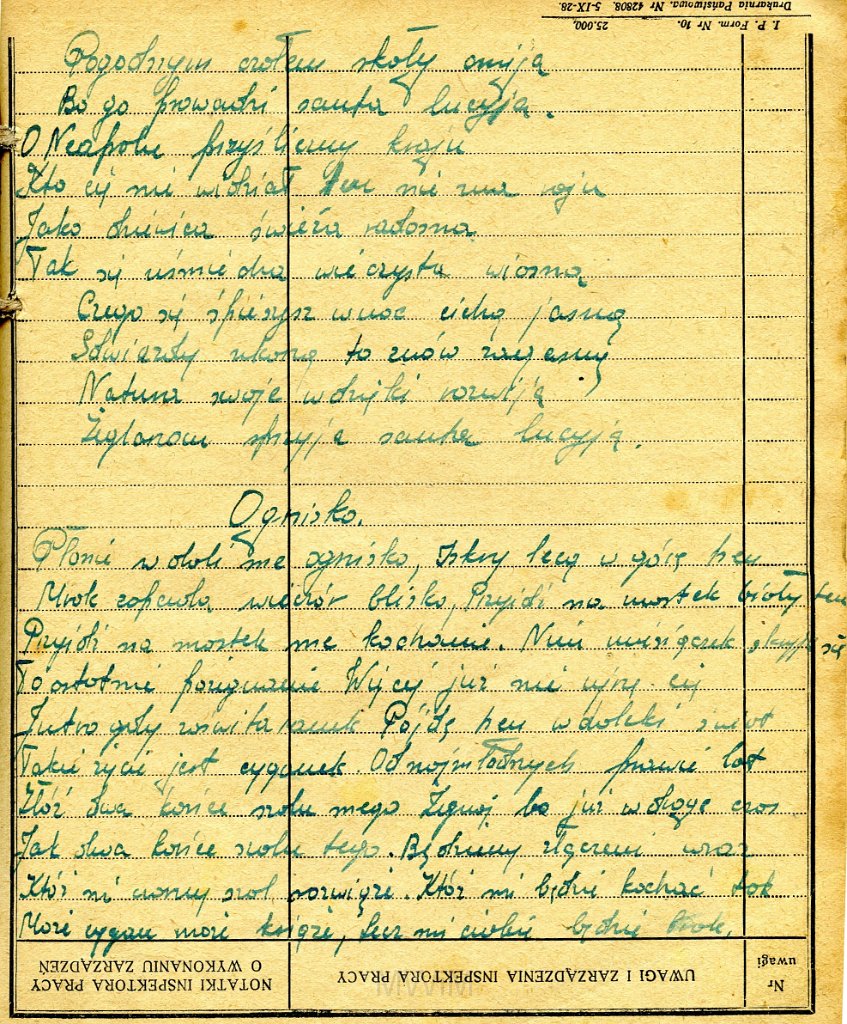 I. P. Form. Nr 10. 25.000,
Drukarnia Państwowa. Nr 42808. 5-IX-28.
Pogodnym czołem skały omija
Bo go prowadzi santa lucyja.
O Neapolu prześliczny kraju
Kto cię nie widział ten nie zna raju
Jako dziewica świeża radosna
Tak się uśmiecha wieczysta wiosna
Czego się śpieszysz w noc cichą jasną
Gdy gwiazdy to znów zagasną
Natura swoje wdzięki rozwija
Żeglarzom sprzyja santa lucyja.
Ognisko.
Płonie w doli me ognisko, Iskry lecą w górę hen
Mrok zapada wieczór blisko, Przyjdź na mostek biały ten
Przyjdź na mostek me kochanie. Nim miesiączek skryje się
To ostatnie pożegnanie Więcej już nie ujrzę cię
Jutro gdy zaświta ranek Pójdę hen w daleki świat
Takie życie jest cyganek. Od najmłodszych prawie lat
Złóż dwa końce szalu mego Żegnaj bo już w drogę czas
Jak dwa końce szalu tego. Będziemy złączeni wraz
Któż mi czarny szal rozwiąże. Któż mi będzie kochać tak
Może cygan może książe, Lecz mi ciebie będzie brak.
NOTATKI INSPEKTORA PRACY O WYKONANIU ZARZĄDZEŃ
UWAGI I ZARZĄDZENIA INSPEKTORA PRACY
Nr uwagi